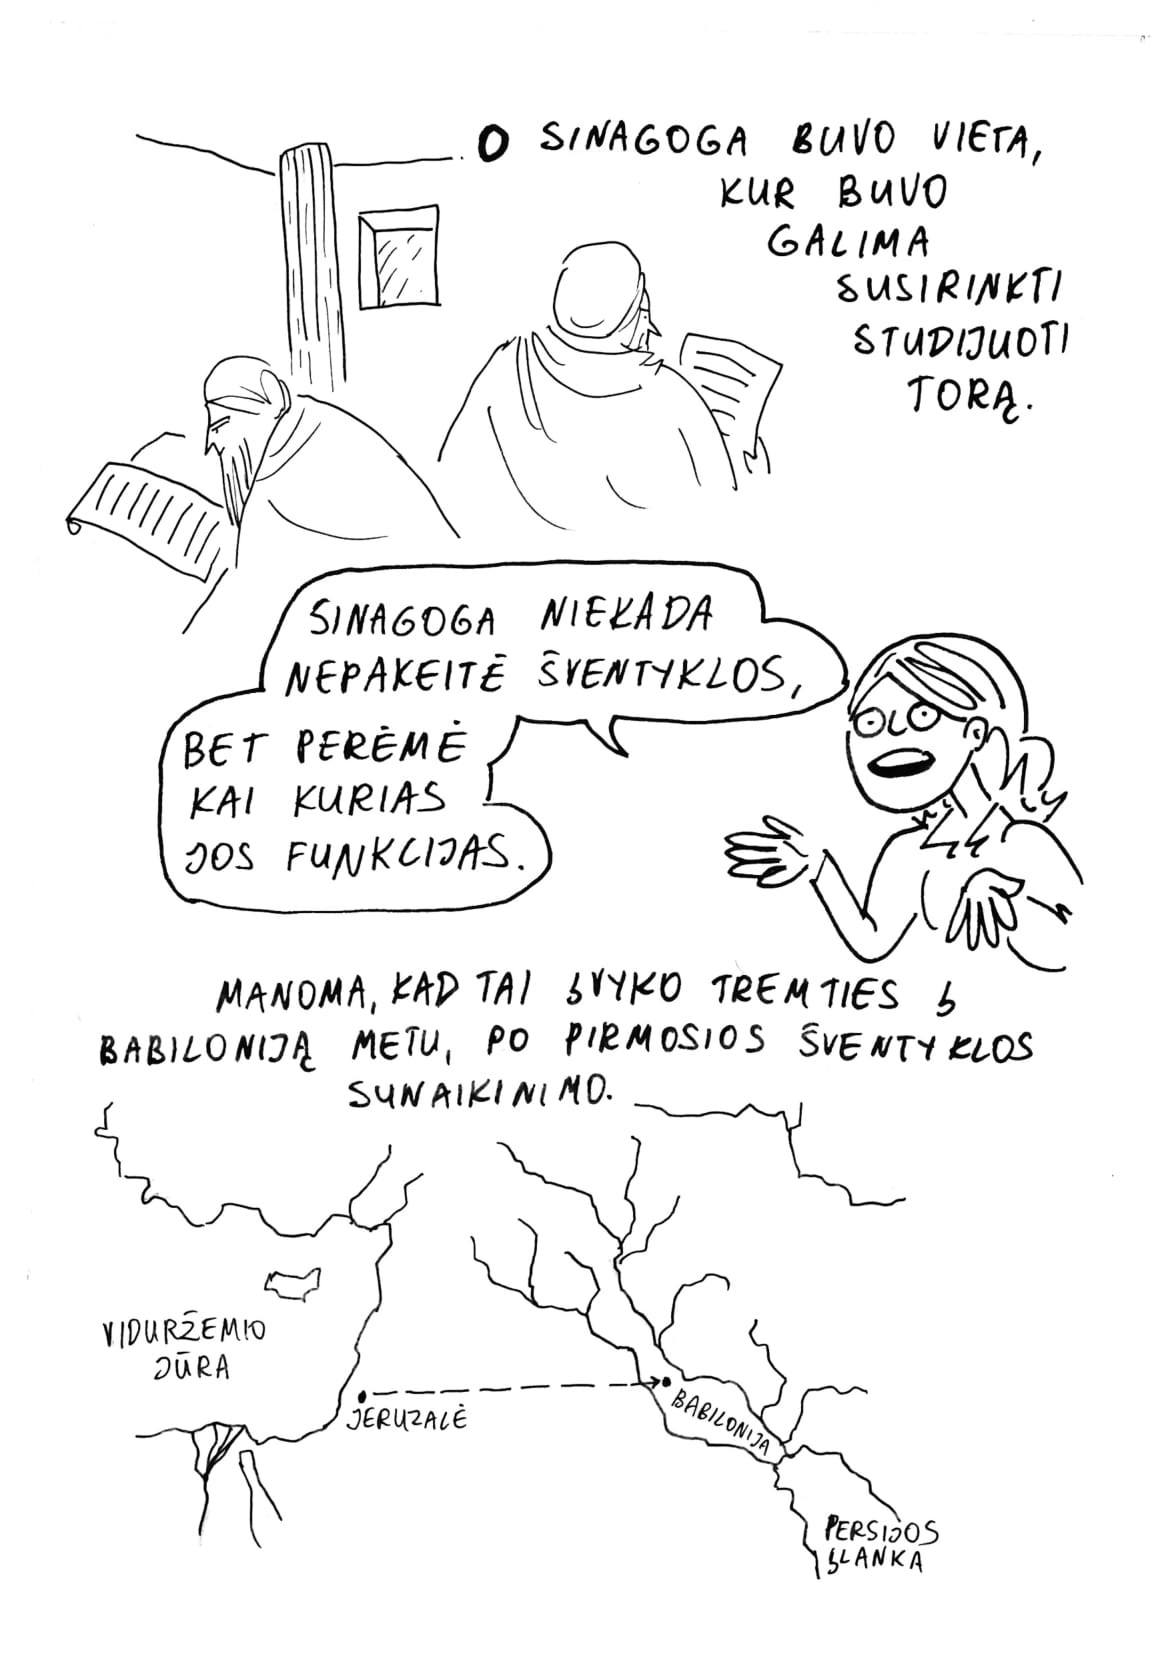 O SINAGOGA BUVO VIETA,
KUR BUVO
GALIMA
SUSIRINKTI
STUDIJUOTI
TORĄ.
SINAGOGA NIEKADA
NEPAKEITĖ ŠVENTYKLOS,
BET PERĖMĖ
KAI KURIAS
JOS FUNKCIJAS.
MANOMA, KAD TAI ĮVYKO TREMTIES Į
BABILONIJĄ METU, PO PIRMOSIOS ŠVENTYKLOS
SUNAIKINIMO.
VIDURŽEMIO
JŪRA
JERUZALĖ
BABILONIJA
PERSIJOS
ĮLANKA